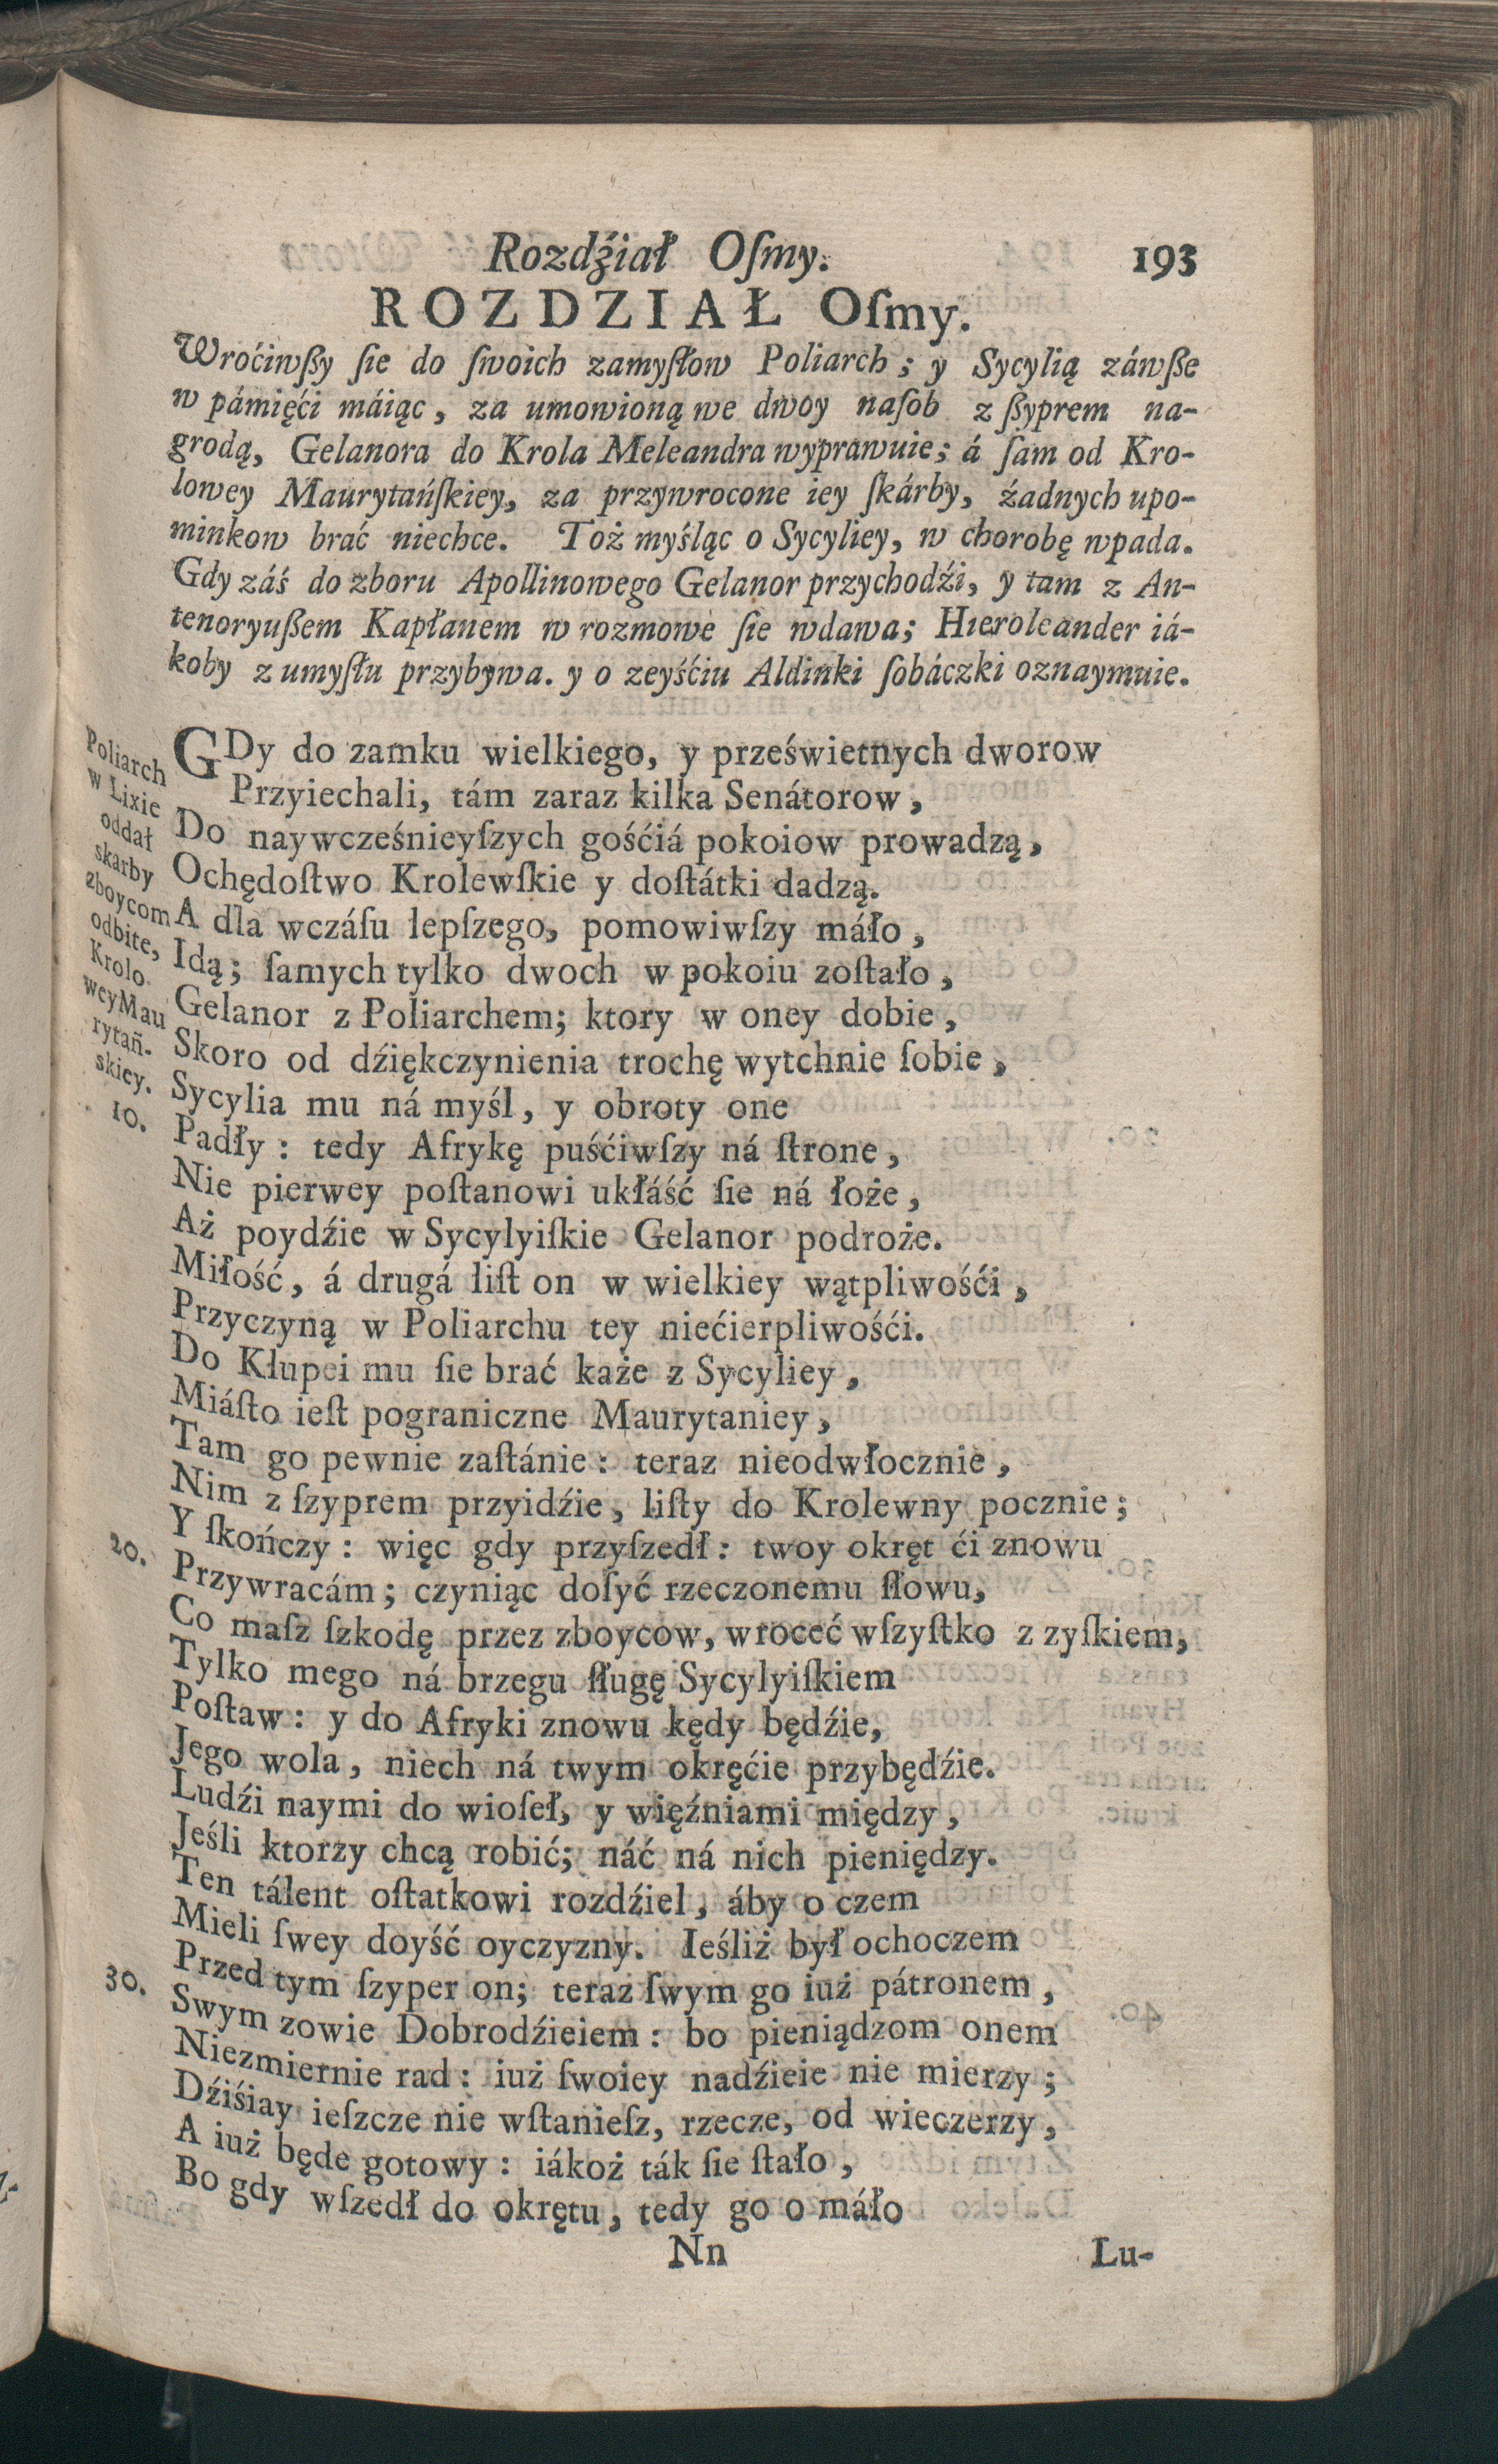 Rozdźiał Oſmy. 193
ROZDZIAŁ Oſmy.
Wroćiwßy ſie do ſwoich zamyſłow Poliarch; y Sycylią záwße
w pámięći máiąc, za umowioną we dwoy naſob z ßyprem na-
grodą, Gelanora do Krola Meleandra wyprawuie; á ſam od Kro-
lowey Maurytańſkiey, za przywrocone iey ſkárby, źadnych upo-
minkow brać niechce. Toż myśląc o Sycyliey, w chorobę wpada.
Gdy záś do zboru Apollinowego Gelanor przychodźi, y tam z An-
tenoryußem Kapłanem w rozmowe ſie wdawa; Hieroleander iá-
koby z umyſłu przybywa. y o zeyśćiu Aldinki ſobáczki oznaymuie.
Poliarch
w Lixie
oddał
skarby
zboycom
odbite,
Krolo
wey Mau
rytań.
skiey.
GDy do zamku wielkiego, y prześwietnych dworow
Przyiechali, tám zaraz kilka Senátorow,
Do naywcześnieyſzych gośćiá pokoiow prowadzą,
Ochędoſtwo Krolewſkie y doſtátki dadzą.
A dla wczáſu lepſzego, pomowiwſzy máło,
Idą; ſamych tylko dwoch w pokoiu zoſtało,
Gelanor z Poliarchem; ktory w oney dobie,
Skoro od dźiękczynienia trochę wytchnie ſobie,
Sycylia mu ná myśl, y obroty one
10. Padły: tedy Afrykę puśćiwſzy ná ſtrone,
Nie pierwey poſtanowi ukłáść ſie ná łoże,
Aż poydźie w Sycylyiſkie Gelanor podroże.
Miłość, á drugá liſt on w wielkiey wątpliwośći,
Przyczyną w Poliarchu tey niećierpliwośći.
Do Kłupei mu ſie brać każe z Sycyliey,
Miáſto ieſt pograniczne Maurytaniey,
Tam go pewnie zaſtánie: teraz nieodwłocznie,
Nim z ſzyprem przyidźie, liſty do Krolewny pocznie;
Y ſkończy: więc gdy przyſzedł: twoy okręt ći znowu
20. Przywracám; czyniąc doſyć rzeczonemu ſłowu,
Co maſz ſzkodę przez zboycow, wroceć wſzyſtko z zyſkiem,
Tylko mego ná brzegu ſługę Sycylyiſkiem
Poſtaw: y do Afryki znowu kędy będźie,
Jego wola, niech ná twym okręćie przybędźie.
Ludźi naymi do wioſeł, y więźniami między,
Jeśli ktorzy chcą robić; náć ná nich pieniędzy.
Ten tálent oſtatkowi rozdźiel, áby o czem
Mieli ſwey doyść oyczyzny. Ieśliż był ochoczem
Przed tym ſzyper on; teraz ſwym go iuż pátronem,
30. Swym zowie Dobrodźieiem: bo pieniądzom onem
Niezmiernie rad: iuż ſwoiey nadźieie nie mierzy;
Dźiśiay ieſzcze nie wſtanieſz, rzecze, od wieczerzy,
A iuż będe gotowy: iákoż ták ſie ſtało,
Bo gdy wſzedł do okrętu, tedy go o máło
Nn Lu-